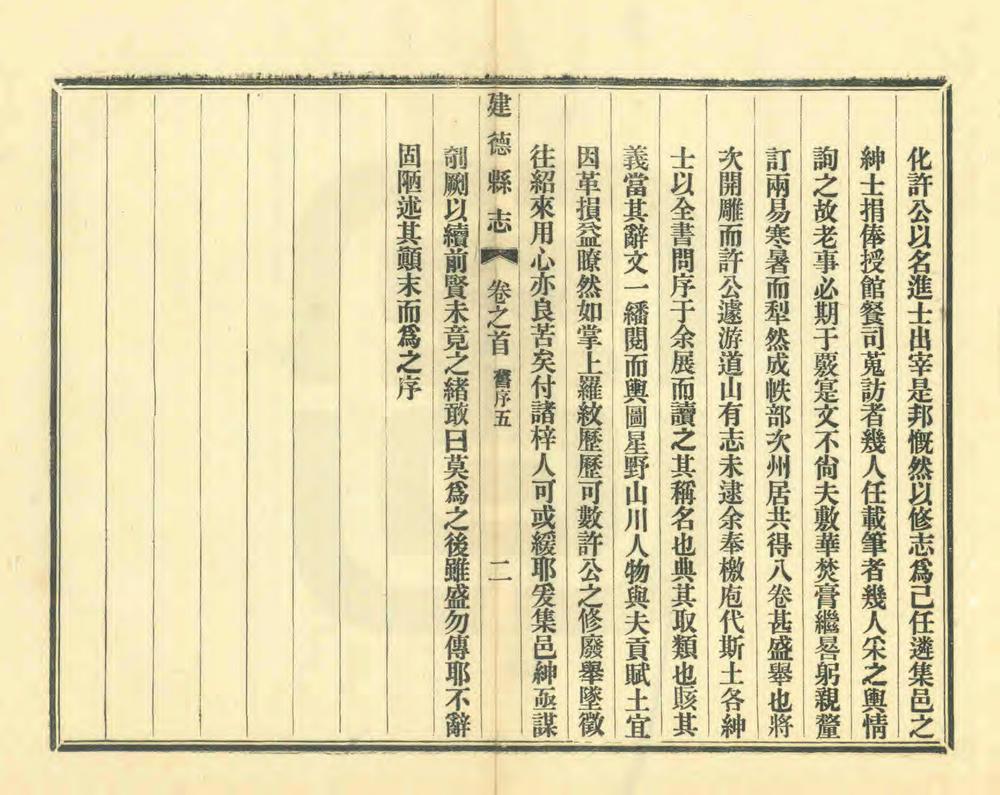 化許公以名進士出宰是邦慨然以修志爲己任遴集邑之
紳士捐俸授館餐司蒐訪者幾人任載筆者幾人采之輿情
詢之故老事必期于覈寔文不尙夫敷華焚膏繼晷躬親釐
訂兩易寒暑而犁然成帙部次州居共得八卷甚盛舉也將
次開雕而許公遽游道山有志未逮余奉檄庖代斯土各紳
士以全書問序于余展而讀之其稱名也典其取類也賅其
義當其辭文一繙閱而輿圖星野山川人物與夫貢賦土宜
因革損益瞭然如掌上羅紋歷歷可數許公之修廢舉墜徵
往紹來用心亦良苦矣付諸梓人可或緩耶爰集邑紳亟謀
建德縣志 卷之首 舊序五 二
剞劂以續前賢未竟之緒敢曰莫爲之後雖盛勿傳耶不辭
固陋述其顛末而爲之序